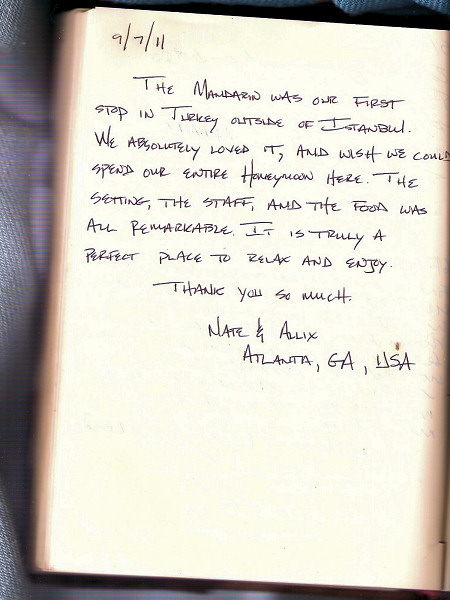 9/7/11
THE MANDARIN WAS OUR FIRST
STOP IN TURKEY OUTSIDE OF ISTANBUL.
WE ABSOLUTELY LOVED IT, AND WISH WE COULD
SPEND OUR ENTIRE HONEYMOON HERE. THE
SETTING, THE STAFF, AND THE FOOD WAS
ALL REMARKABLE. IT IS TRULY A
PERFECT PLACE TO RELAX AND ENJOY.
THANK YOU SO MUCH.
NATE & ALLIX
ATLANTA, GA, USA